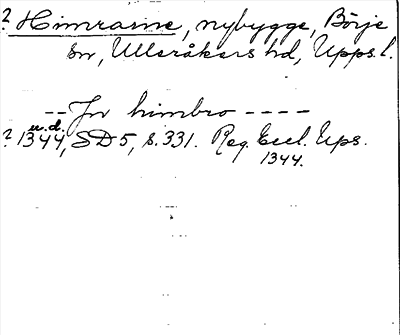 ? Himrasne, nybygge, Börje
sn, Ulleråkers hd, Upps. l.
-- Jn himbro ----
u.d.
? 1344, SD 5, s. 331. Reg. Eccl. Ups.
1344.